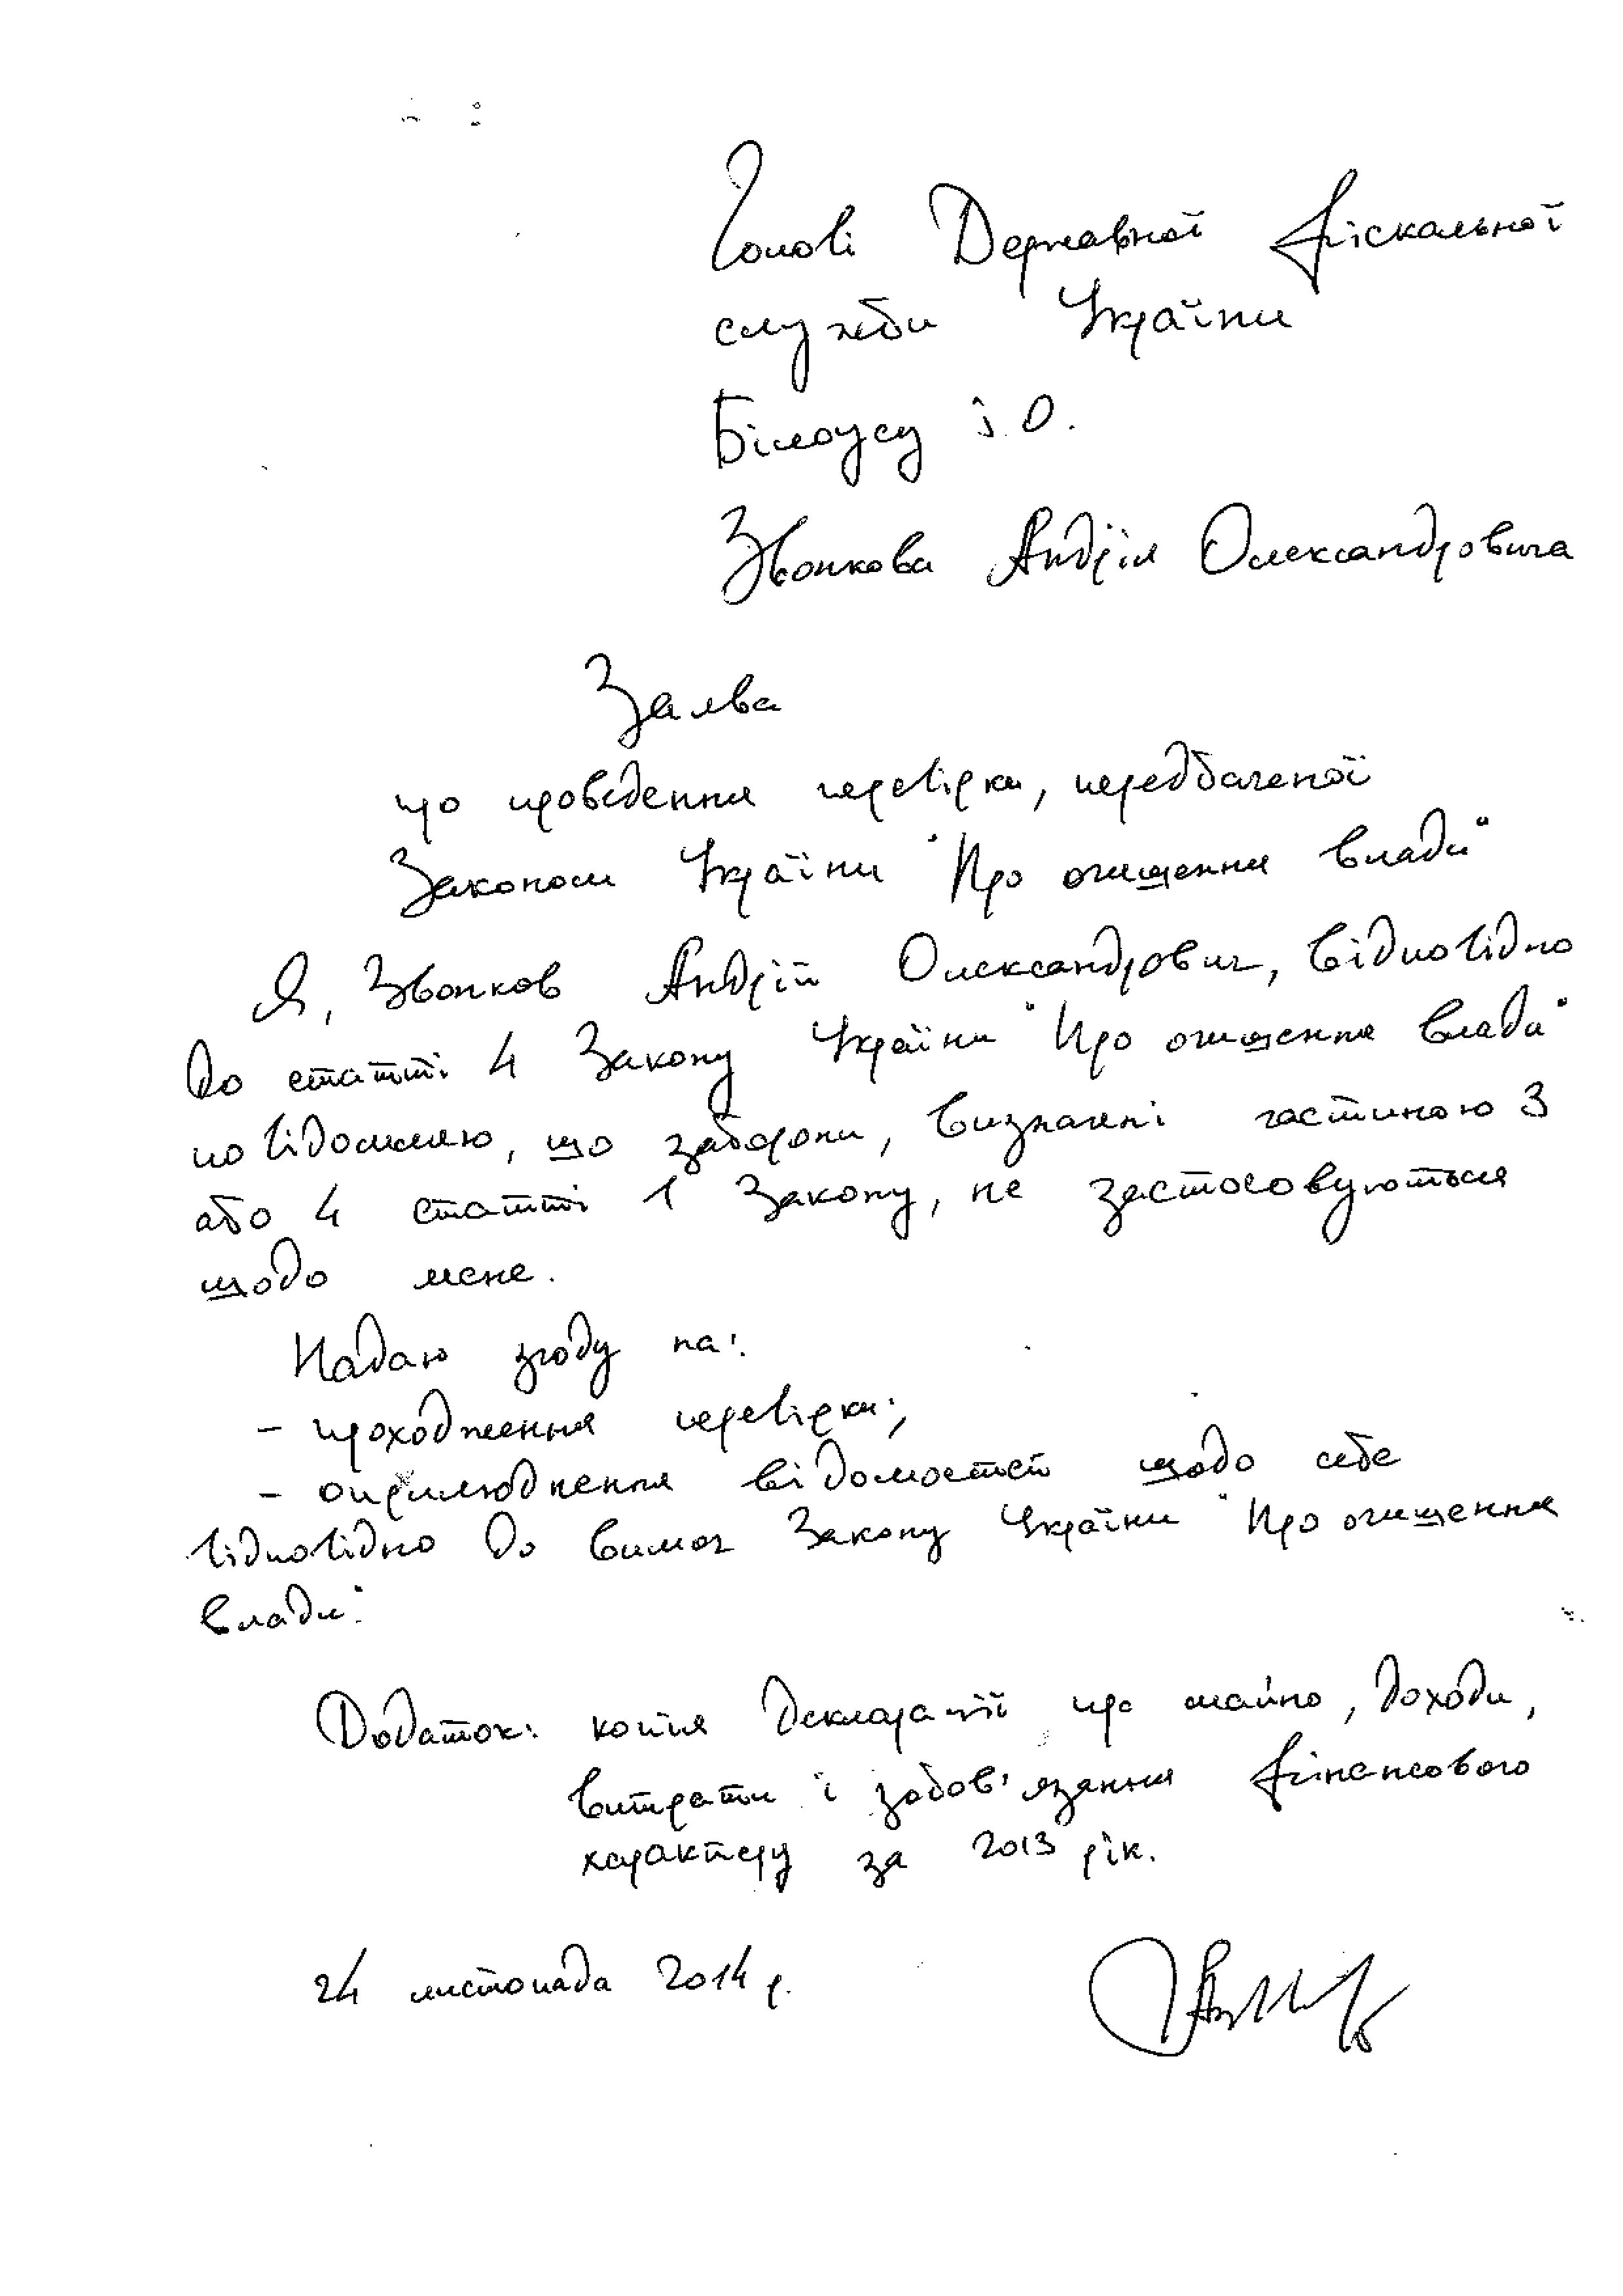 Голові Державної фіскальної
служби України
Білоусу І.О.
Звонкова Андрія Олександровича
Заява
про проведення перевірки, передбаченої
Законом України "Про очищення влади"
Я, Звонков Андрій Олександрович, відповідно
до статті 4 Закону України "Про очищення влади"
повідомляю, що заборони, визначені частиною 3
або 4 статті 1 Закону, не застосовуються
щодо мене.
Надаю згоду на:
- проходження перевірки;
- оприлюднення відомостей щодо себе
відповідно до вимог Закону України "Про очищення
влади".
Додаток: копія Декларації про майно, доходи,
витрати і зобов'язання фінансового
характеру за 2013 рік.
24 листопада 2014 р.